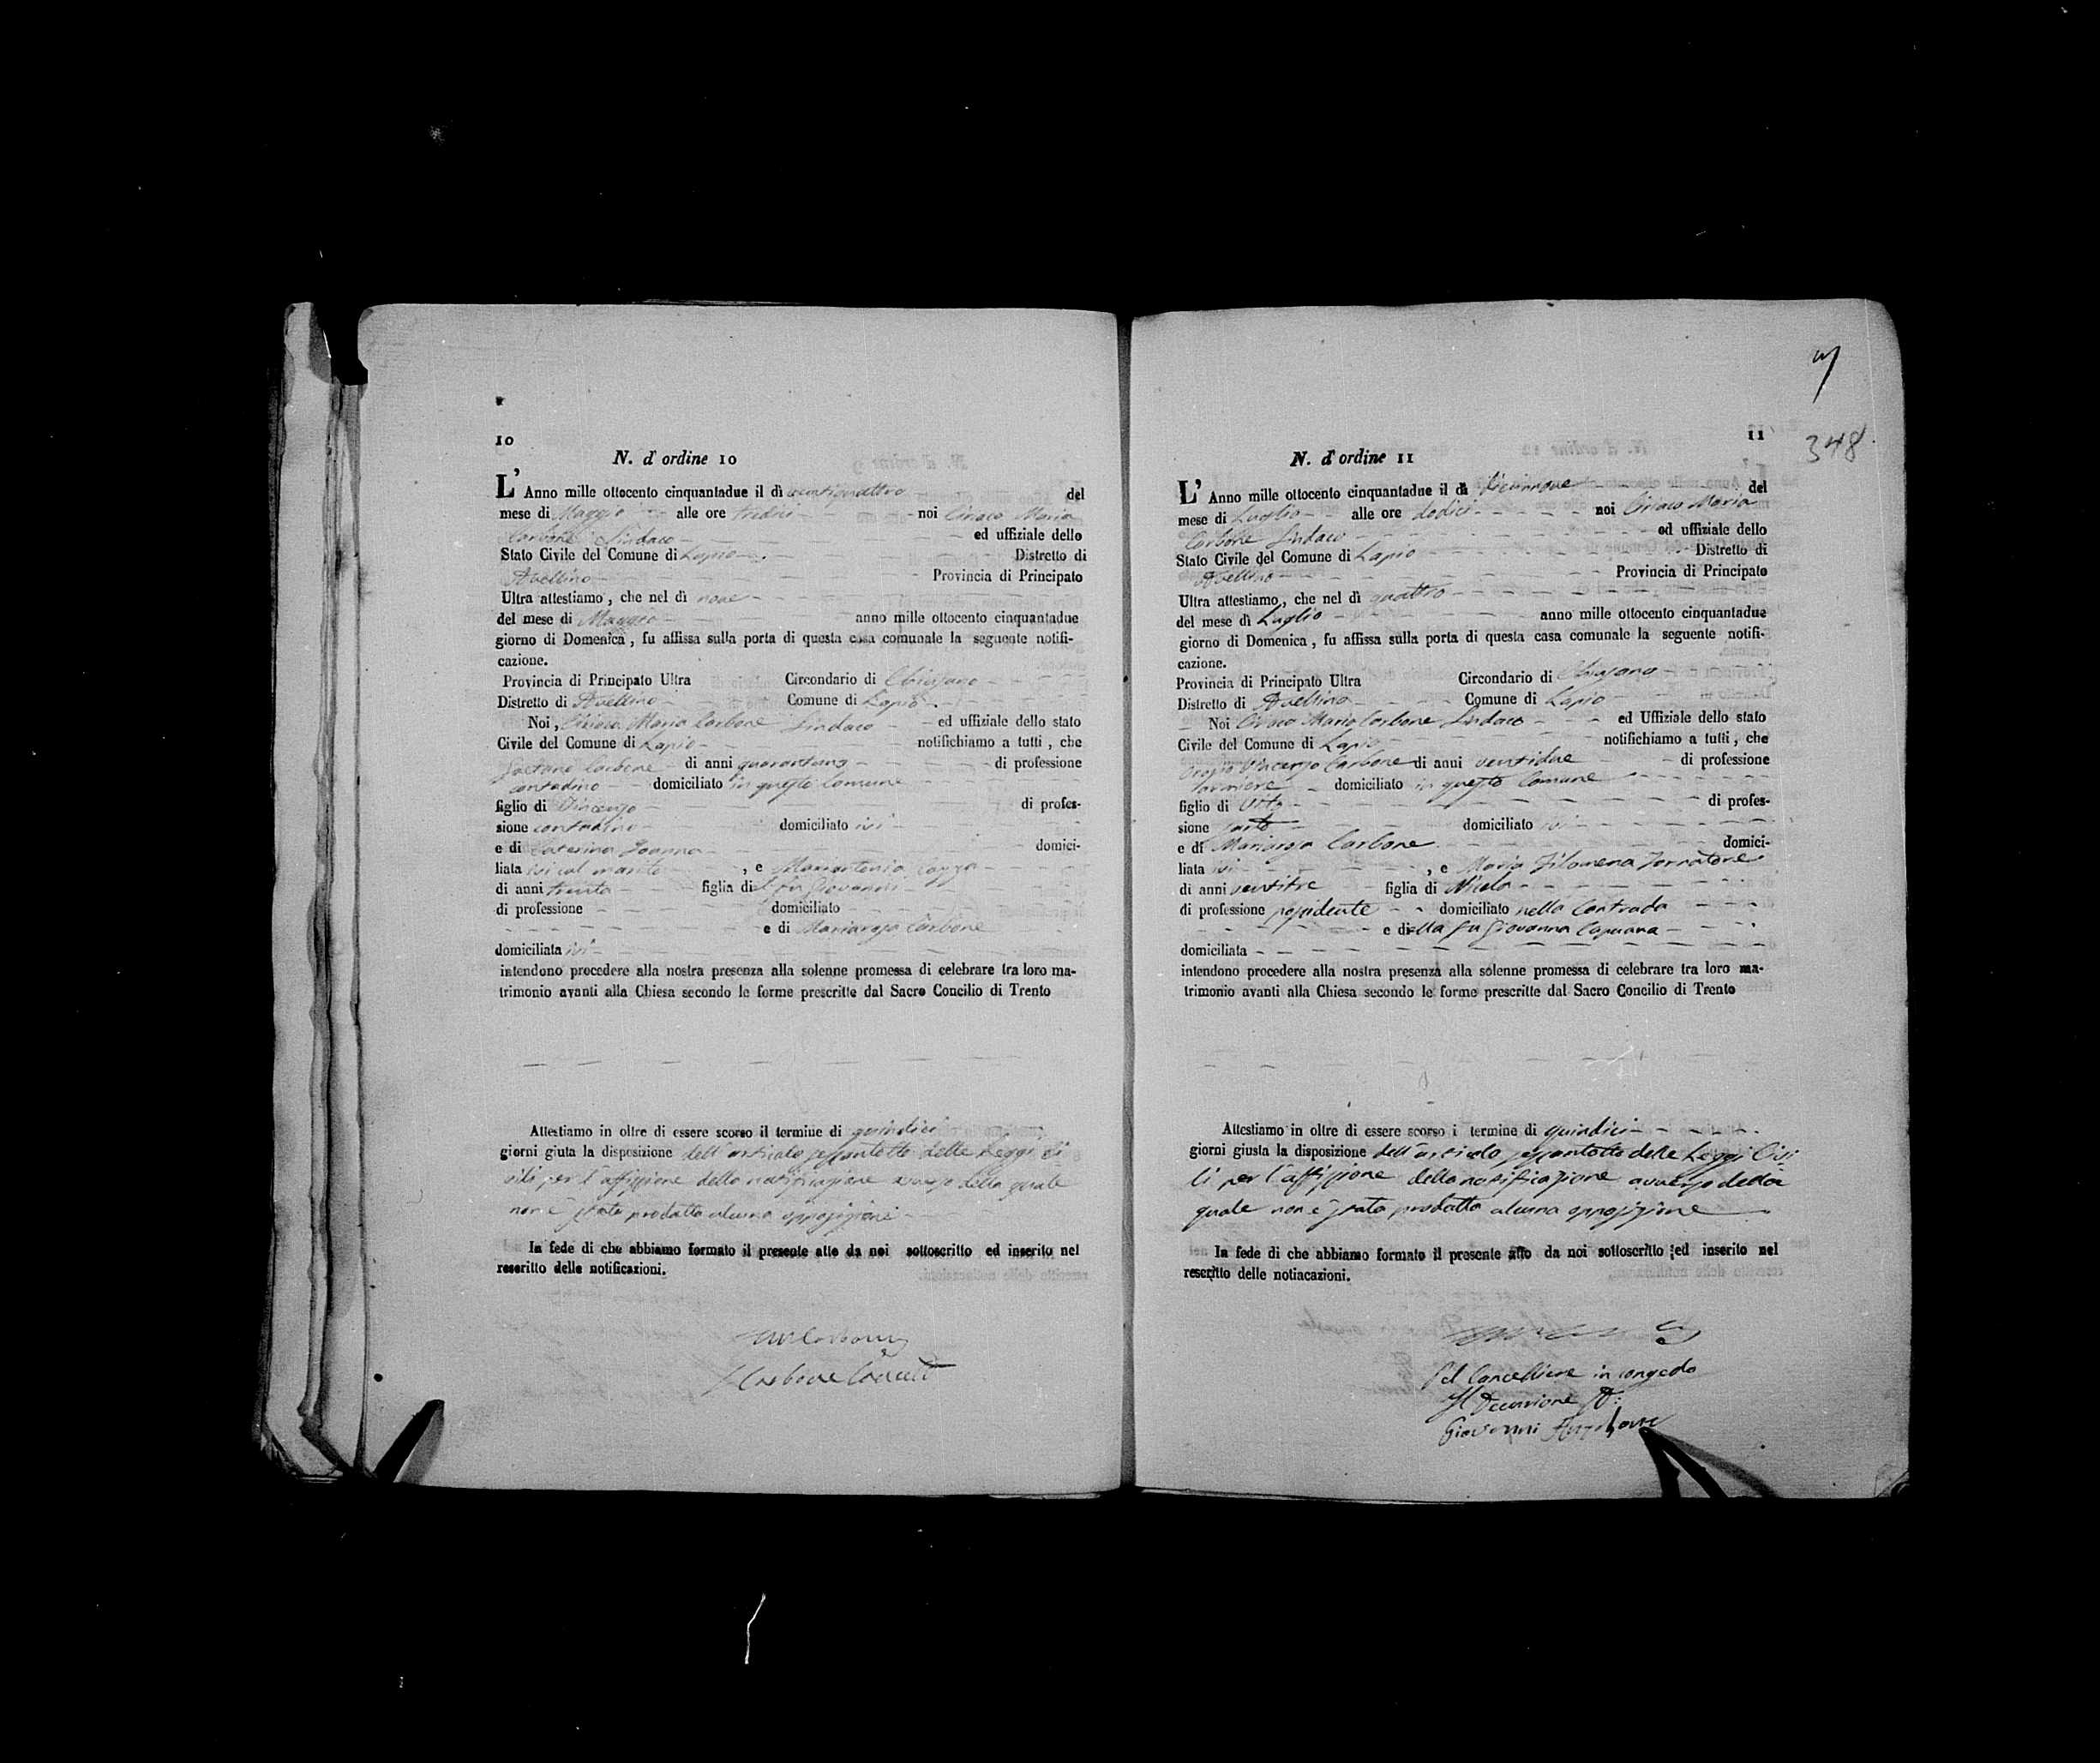 10
N. d' ordine 10
L' Anno mille ottocento cinquantadue il dì ventiquattro del
mese di Maggio alle ore tredici noi Ciriaco Maria
Carbone Sindaco ed uffiziale dello
Stato Civile del Comune di Lapio Distretto di
Avellino Provincia di Principato
Ultra attestiamo, che nel dì nove
del mese di Maggio anno mille ottocento cinquantadue
giorno di Domenica, fu affissa sulla porta di questa casa comunale la seguente notifi-
cazione.
Provincia di Principato Ultra Circondario di Chiusano
Distretto di Avellino Comune di Lapio
Noi, Ciriaco Maria Carbone Sindaco ed uffiziale dello stato
Civile del Comune di Lapio notifichiamo a tutti, che
Gaetano Carbone di anni quarantuno di professione
contadino domiciliato in questo Comune
figlio di Vincenzo di profes-
sione contadino domiciliato ivi
e di Caterina domici-
liata ivi col marito, e Mariantonia
di anni trenta figlia di fu Giovanni
di professione domiciliato
e di Mariarosa Carbone
domiciliata ivi
intendono procedere alla nostra presenza alla solenne promessa di celebrare tra loro ma-
trimonio avanti alla Chiesa secondo le forme prescritte dal Sacro Concilio di Trento
Attestiamo in oltre di essere scorso il termine di quindici
giorni giuta la disposizione dell'articolo sessantotto delle Leggi Ci
vili per l'affissione della notificazione avverso della quale
non è stata prodotta alcuna opposizione
In fede di che abbiamo formato il presente atto da noi sottoscritto ed inserito nel
rescritto delle notificazioni.
Carbone
Carbone
11
348
N. d' ordine 11
L' Anno mille ottocento cinquantadue il dì diciannove del
mese di Luglio alle ore dodici noi Ciriaco Maria
Carbone Sindaco ed uffiziale dello
Stato Civile del Comune di Lapio Distretto di
Avellino Provincia di Principato
Ultra attestiamo, che nel dì quattro
del mese di Luglio anno mille ottocento cinquantadue
giorno di Domenica, fu affissa sulla porta di questa casa comunale la seguente notifi-
cazione.
Provincia di Principato Ultra Circondario di Chiusano
Distretto di Avellino Comune di Lapio
Noi Ciriaco Maria Carbone Sindaco ed Uffiziale dello stato
Civile del Comune di Lapio notifichiamo a tutti, che
Vincenzo Carbone di anni ventidue di professione
domiciliato in questo Comune
figlio di Vito di profes-
sione sarto domiciliato ivi
e di Mariarosa Carbone domici-
liata ivi, e Maria Filomena Tornatore
di anni ventitre figlia di Nicola
di professione possidente domiciliato nella Contrada
e della fu Giovanna Capuana
domiciliata
intendono procedere alla nostra presenza alla solenne promessa di celebrare tra loro ma-
trimonio avanti alla Chiesa secondo le forme prescritte dal Sacro Concilio di Trento
Attestiamo in oltre di essere scorso i termine di quindici
giorni giusta la disposizione dell'articolo sessantotto delle Leggi Civi
li per l'affissione della notificazione avverso della
quale non è stata prodotta alcuna opposizione
In fede di che abbiamo formato il presente atto da noi sottoscritto ed inserito nel
rescritto delle notiacazioni.
Pel Cancelliere in congedo
Il Decurione
Giovanni